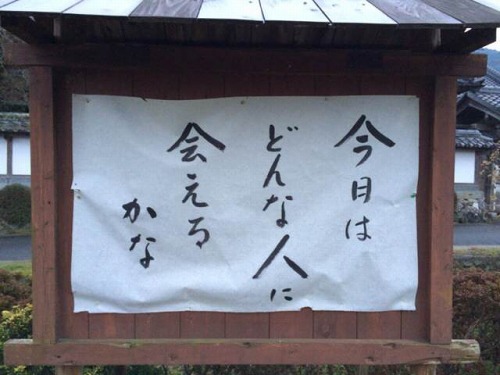 今日は
どんな人に
会える
かな